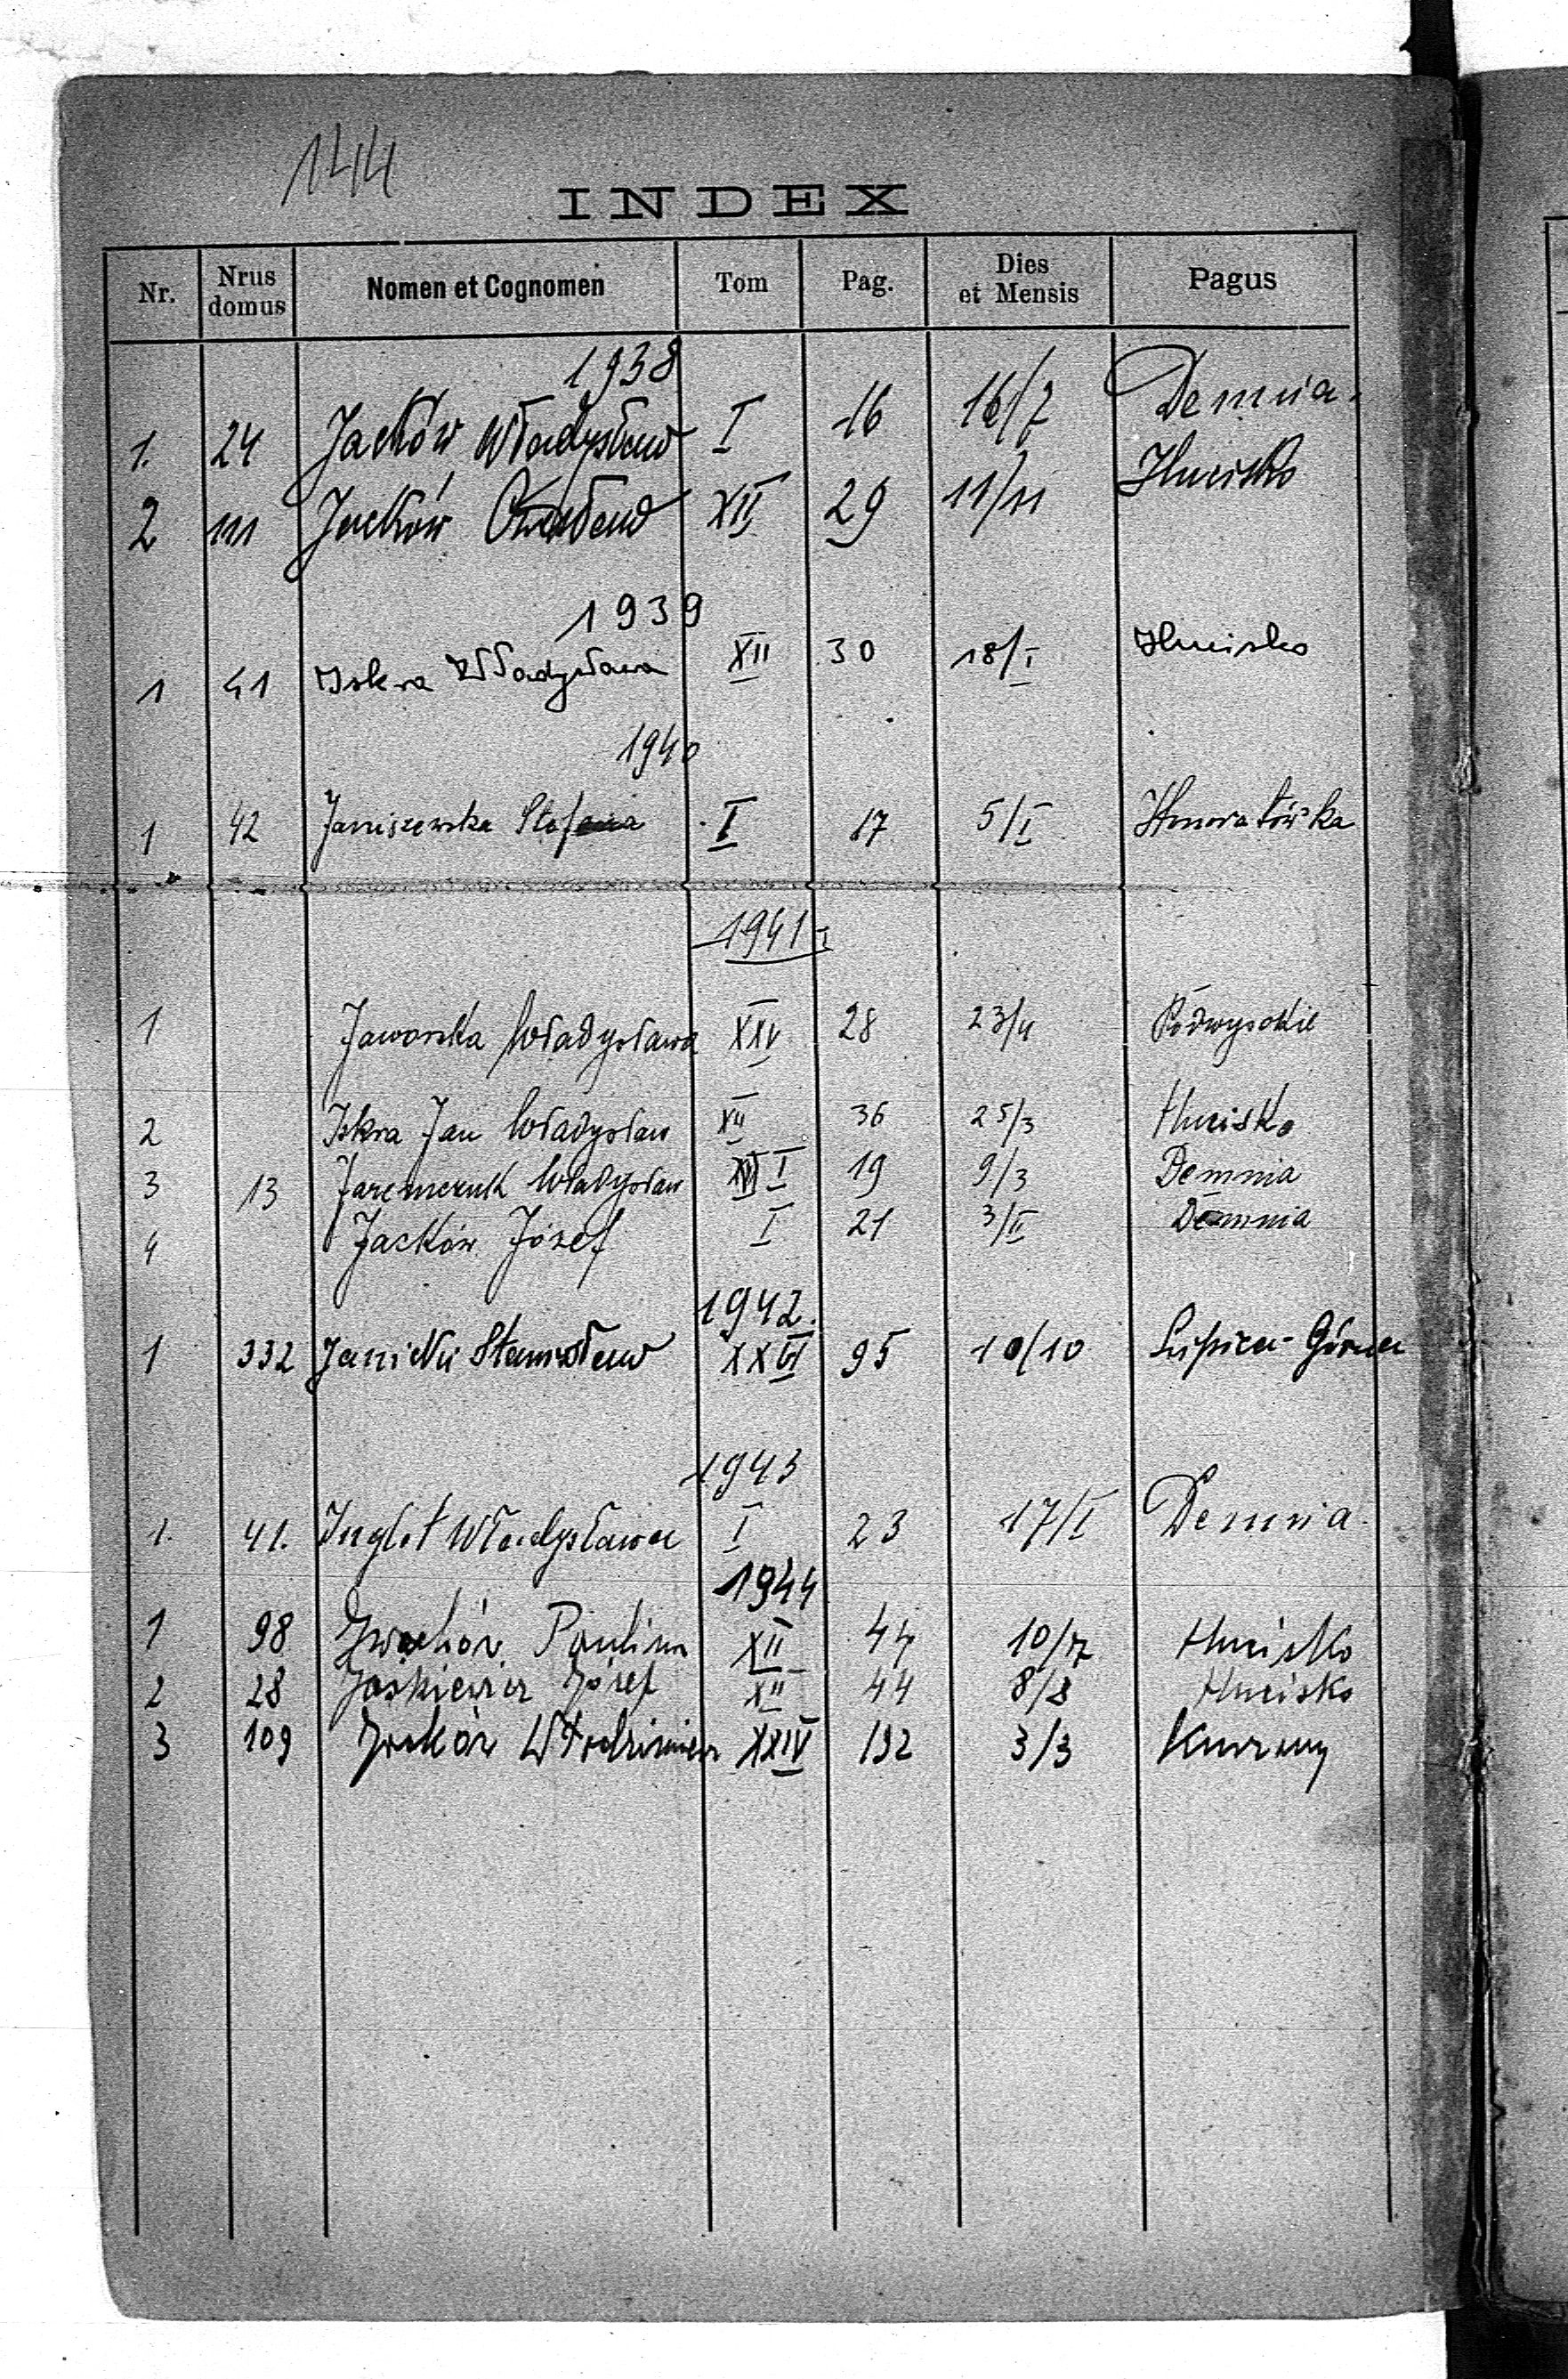 144
INDEX
Nr. Nrus domus Nomen et Cognomen Tom Pag. Dies et Mensis Pagus
1938
1. 24 Jacków Władysław I 16 16/7 Demnia.
2 111 Jacków XII 29 11/11 Hucisko
1939
1 41 Iskra Władysława XII 30 18/I Hucisko
1940
1 42 Janiszewska Stefania I 17 5/I Honoratówka
1941
1 Jaworska Władysława XIV 28 23/4 Podwysokie
2 Iskra Jan Władysław XII 36 25/3 Hucisko
3 13 Jaremczuk Władysław I 19 9/3 Demnia
4 Jacków Józef I 21 3/II Demnia
1942.
1 332 Janicki Stanisław XXVI 95 10/10 Lipica-Górna
1943
1. 41. Inglot Władysława I 23 17/I Demnia.
1944
1 98 Paulina XII 44 10/7 Hucisko
2 28 Jaśkiewicz Józef XII 44 8/8 Hucisko
3 109 Jacków Włodzimierz XXIV 132 3/3 Kurzany